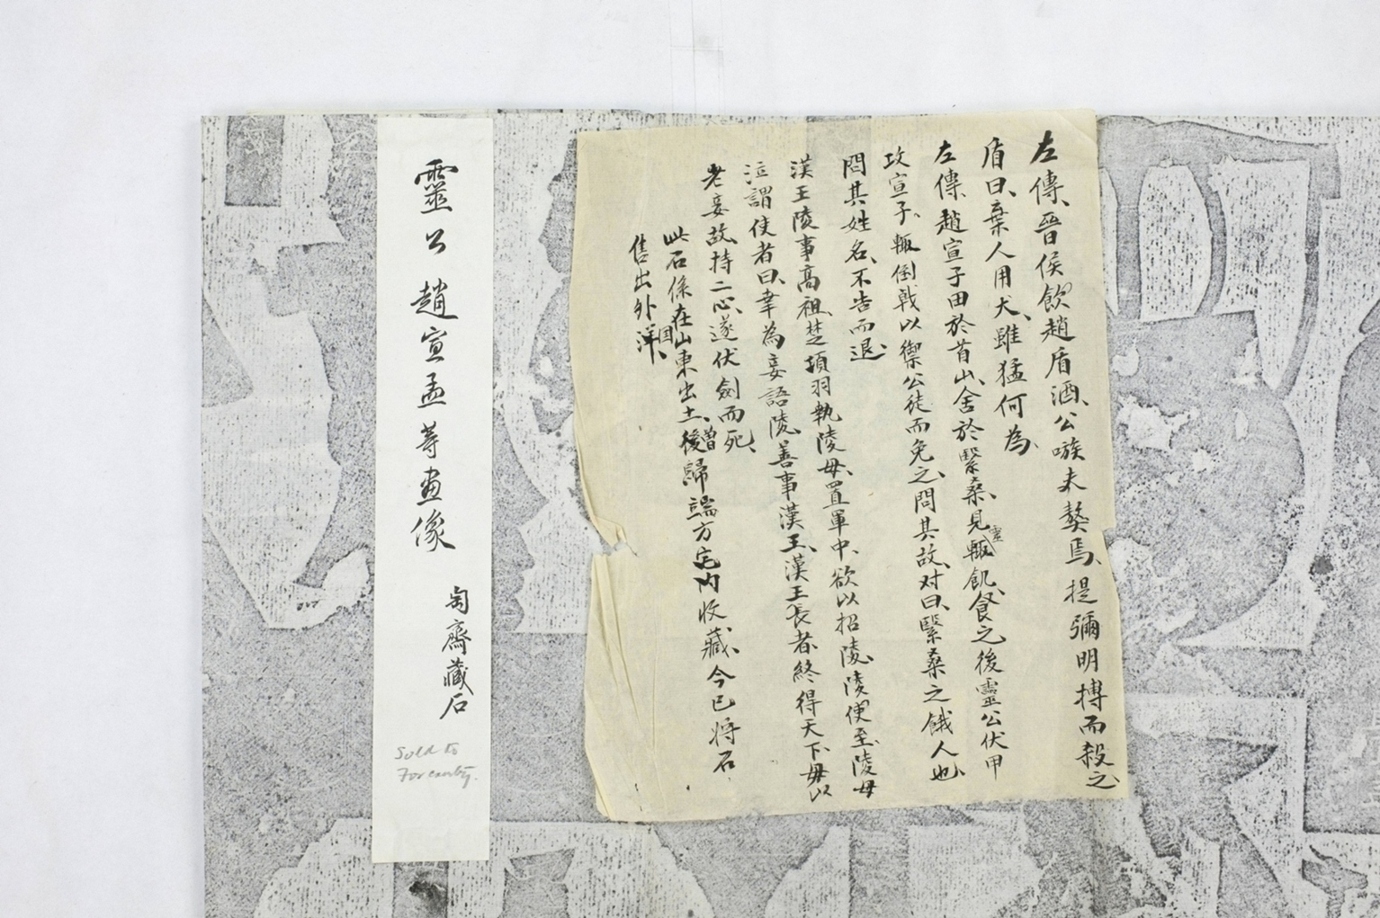 左傳、晉侯飲趙盾酒、公嗾夫獒焉、提彌明搏而殺之、
盾曰、棄人用犬、雖猛何為、
左傳、趙宣子田於首山、舍於翳桑、見靈輒飢、食之後靈公伏甲
攻宣子、輒倒戟以禦公徒而免之、問其故、对曰、翳桑之餓人也、
問其姓名、不告而退、
漢王陵事高祖、楚項羽執陵母、置軍中、欲以招陵、陵使至、陵母
泣謂使者曰、幸為妾語陵、善事漢王、漢王長者、終得天下、毋以
老妾故、持二心、遂伏劍而死、
此石係在山東出土、曾後歸端方宅内收藏、今已将石
售出外洋国、
靈公趙宣孟等畫像
匋齋藏石
Sold to
For country.